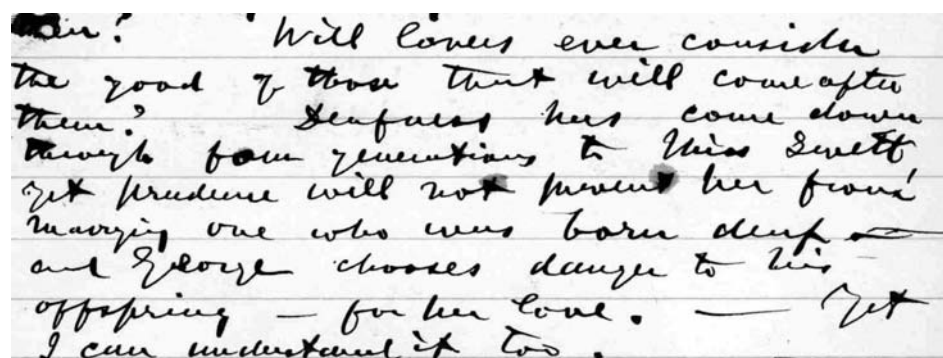 Will lovers ever consider
the good of those that will come after
them? Deafness has come down
through four generations to Miss Swett
yet prudence will not prevent her from
marrying one who was born deaf —
and George chooses danger to his
offspring — for her love. — Yet
I can understand it too.